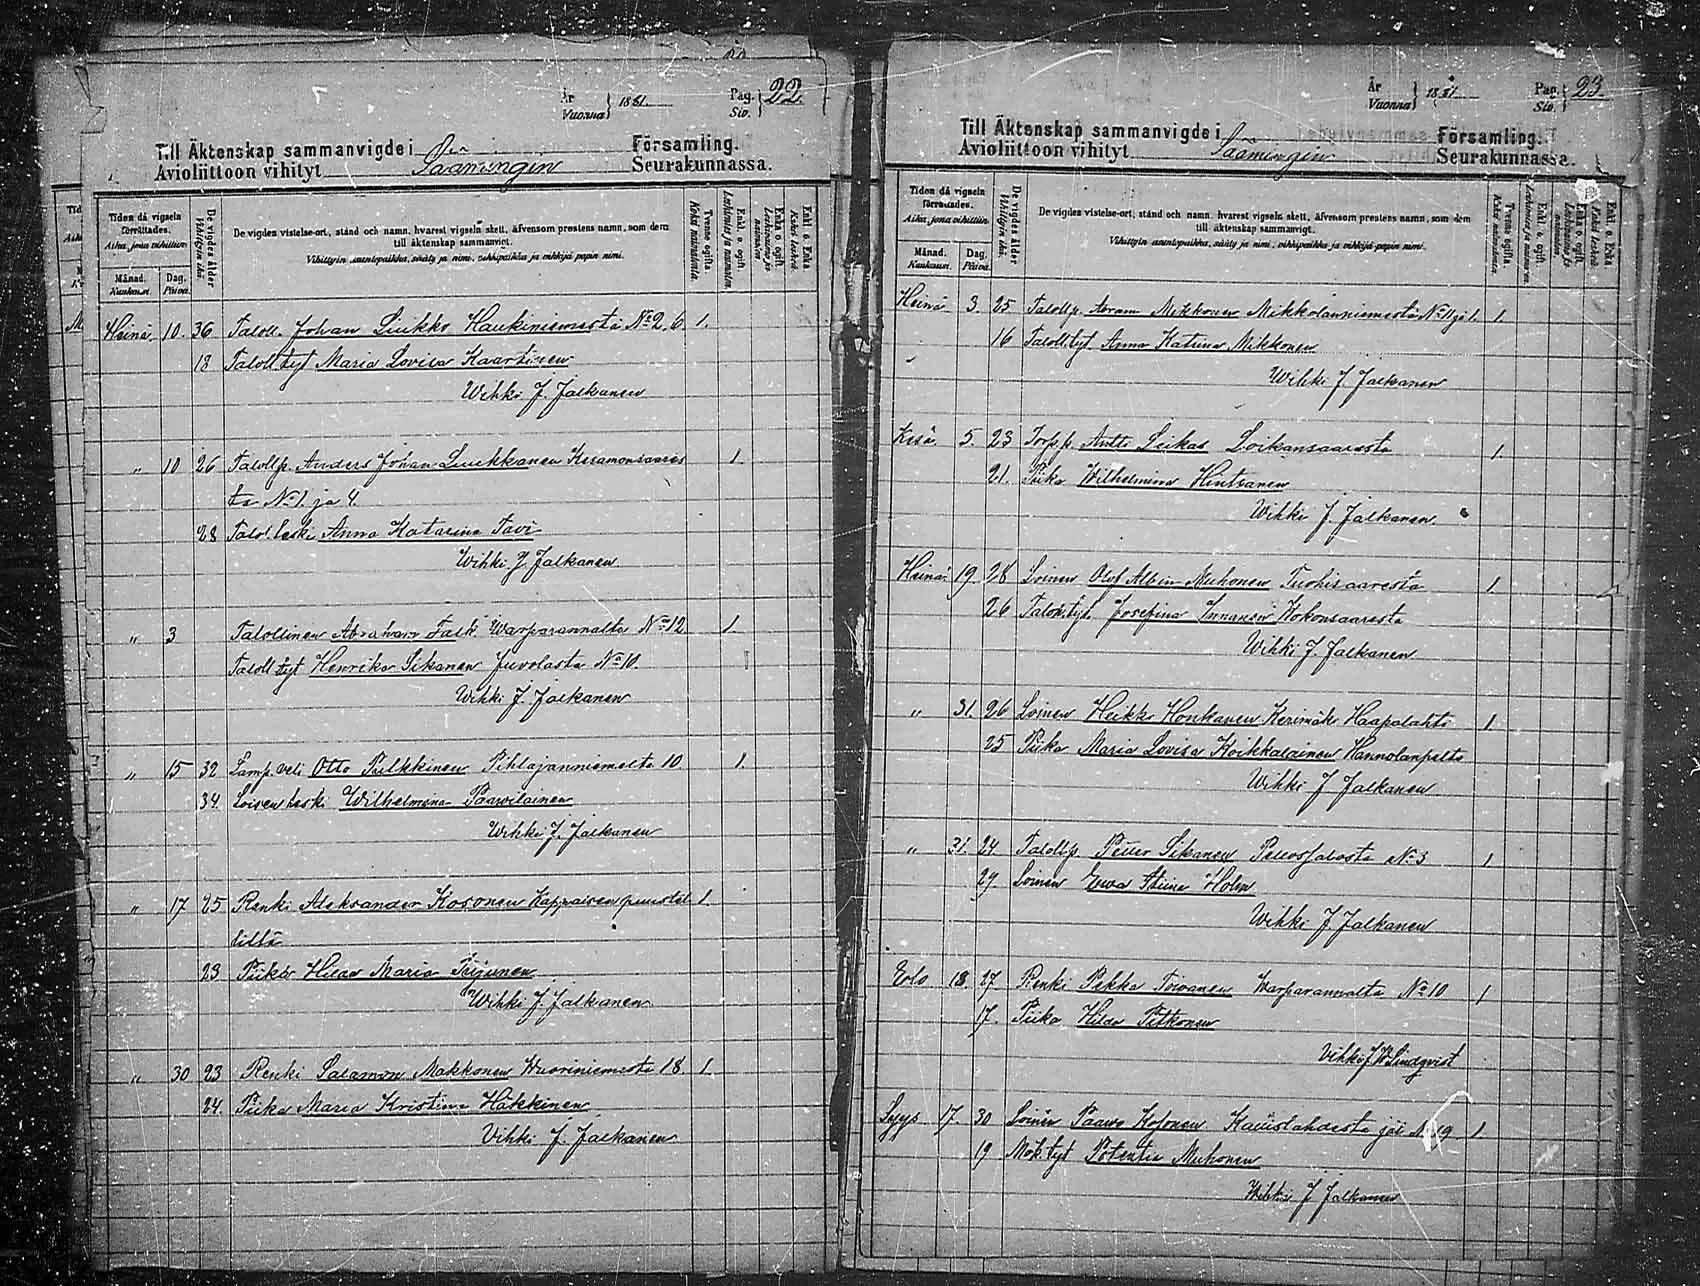 År
Vuonna } 1881.
Pag.
Siv. } 22
Till Äktenskap sammanvigde i
Avioliittoon vihityt
Säämingin
Församling.
Seurakunnassa.
Tiden då vigseln förrättades.
Aika, jona vihittiin.
Månad.
Kuukausi.
Dag.
Päivä.
De vigdes ålder
Vihittyin ikä.
De vigdes vistelse-ort, stånd och namn, hvarest vigseln skett, äfvensom prestens namn, som dem
till äktenskap sammanvigt.
Vihittyin asuntopaikka, sääty ja nimi, vihkipaikka ja vihkijä-papin nimi.
Tvenne ogifta.
Kaksi naimatonta.
Enkl. o. ogift
Leskimies ja naimaton.
Enka o. ogift
Leskivaimo ja naimaton.
Enkl. o. Enka
Kaksi leskeä
Heinä 10. 36 Taloll. Johan Luikko Haukiniemestä No 2. 6. 1.
18 Taloll. tyt Maria Lovisa Kaartinen
Wihki J. Jalkanen
„ 10 26 Talollp. Anders Johan Luukkanen Keramonsaares 1.
ta No 1. ja 4.
28 Talol. leski Anna Katarina Tavi
Wihki J. Jalkanen
„ 3 Talollinen Abraham Falk Warparannalta No 12 1.
Taloll tyt Henrika Sikanen Juvolasta No 10.
Wihki J. Jalkanen
„ 15 32 Lamp. veli Otto Pulkkinen Pihlajanniemeltä 10 1.
34. Loisen leski Wilhelmina Paawilainen
Wihki J. Jalkanen
„ 17 25 Renki Aleksander Kosonen Kappaisen puustel 1.
lillä
23 Piika Hilda Maria
Wihki J. Jalkanen
„ 30 23 Renki Salamon Makkonen Wuoriniemestä 18. 1.
24. Piika Maria Kristina Häkkinen
Vihki J. Jalkanen
År
Vuonna } 1881.
Pag.
Siv. } 23.
Till Äktenskap sammanvigde i
Avioliittoon vihityt
Säämingin
Församling.
Seurakunnassa.
Tiden då vigseln förrättades.
Aika, jona vihittiin.
Månad.
Kuukausi.
Dag.
Päivä.
De vigdes ålder
Vihittyin ikä.
De vigdes vistelse-ort, stånd och namn, hvarest vigseln skett, äfvensom prestens namn, som dem
till äktenskap sammanvigt.
Vihittyin asuntopaikka, sääty ja nimi, vihkipaikka ja vihkijä-papin nimi.
Tvenne ogifta.
Kaksi naimatonta.
Enkl. o. ogift
Leskimies ja naimaton.
Enka o. ogift
Leskivaimo ja naimaton.
Enkl. o. Enka
Kaksi leskeä
Heinä 3. 25 Talollp. Abram Mikkonen Mikkolanniemestä No 11 ja 1. 1.
16 Taloll. tyt. Anna Katrina Mikkonen
Wihki J. Jalkanen
Kesä 5. 23 Torp. p. Antti Leikas Loikansaaresta 1.
21. Piika Wilhelmina Hintsanen
Wihki J. Jalkanen
Heinä. 19. 28 Loinen Olof Albin Muhonen Tuohisaaresta 1
26 Talok. tyt. Josefina Innanen Kokonsaaresta
Wihki J. Jalkanen
„ 31. 26 Loinen Heikki Honkanen Kerimäki Haapalahti 1.
25 Piika Maria Lovisa Koikkalainen Hannolanpelto
Wihki J Jalkanen
„ 31. 24 Talollp. Petter Sikanen Pellossalosta No 3 1
27. Loinen Ewa Stiina Holm
Wihki J Jalkanen
Elo 18. 27 Renki Pekka Toivanen Warparannalta No 10 1
17. Piika Hilda Pitkonen
Vihki J W Lindqvist
Syys 17. 30 Loinen Paavo Kosonen 19 1
19 Mök. tyt Potentia Muhonen
Wihki J Jalkanen